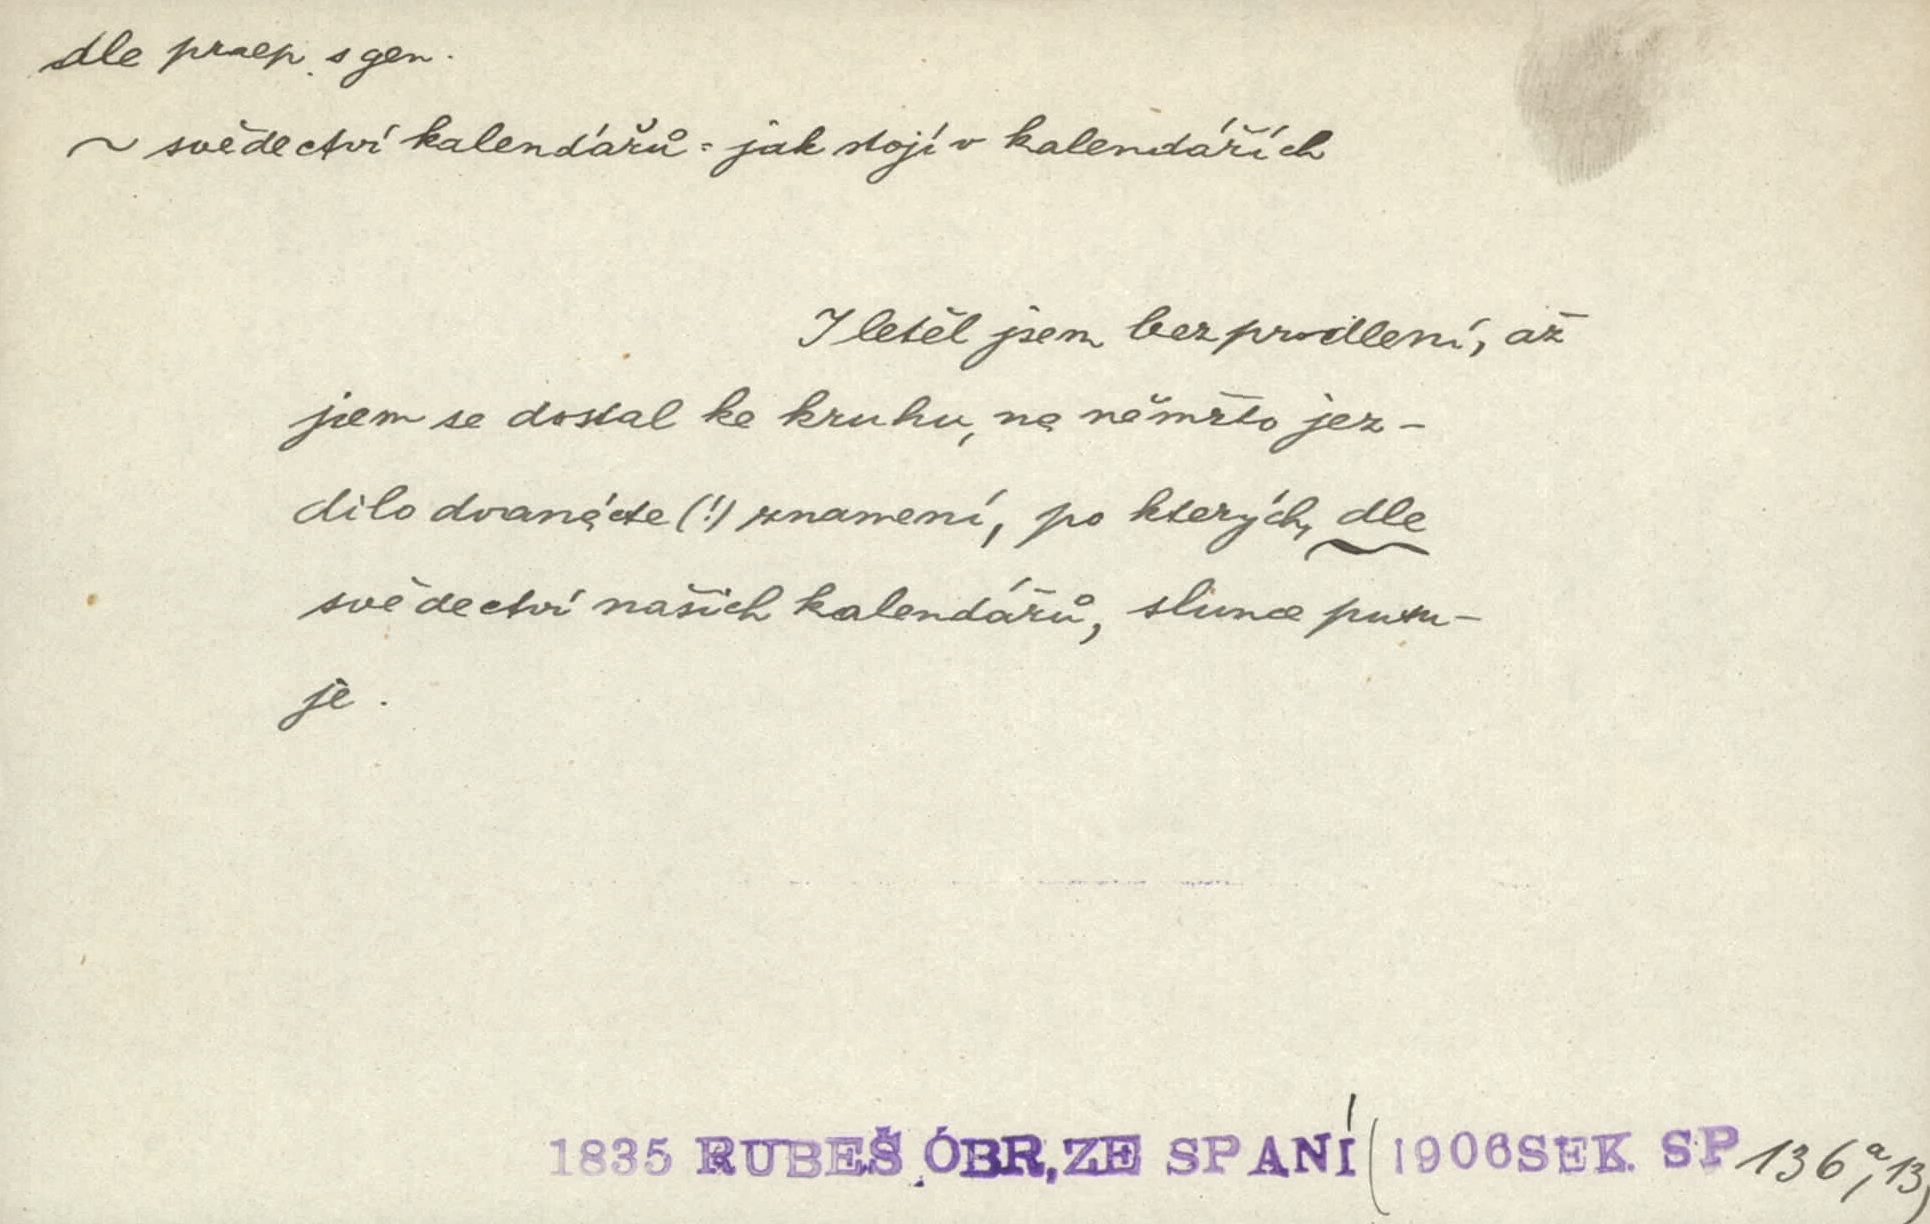 dle praep. s gen.
~ svědectví kalendářů = jak stojí v kalendářích
I letěl jsem bez prodlení, až
jsem se dostal ke kruhu, na němžto jez-
dilo dvanácte (!) znamení, po kterých, dle
svědectví našich kalendářů, slunce putu-
je.
1835 RUBEŠ, ÓBR, ZE SPANÍ (1906 SEK. SP 136a, 13)